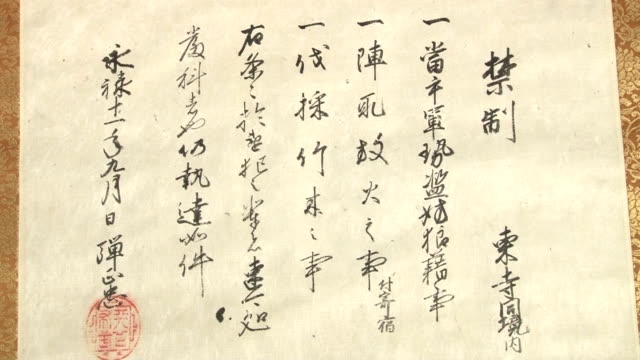 禁制
東寺同境内
一當手軍勢濫妨狼藉事
一陣取放火之事
付寄宿
一伐採竹木之事
右条々於違犯之輩者速可処
厳科者也仍執達如件
永禄十一年九月日 弾正忠